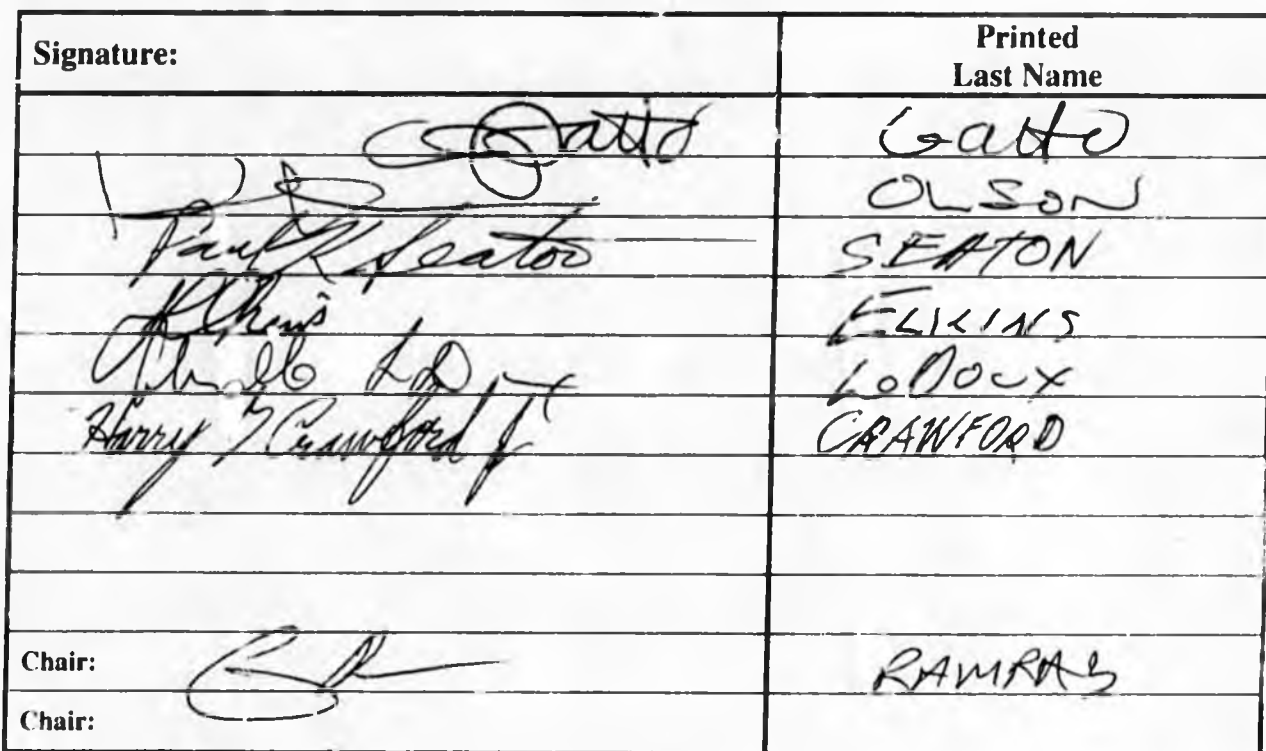 Signature: Printed
Last Name
Gatto Gatto
OLSON
Paul K Seaton SEATON
ELKINS
LeDoux
Harry T Crawford Jr CRAWFORD
Chair: RAMRAS
Chair: